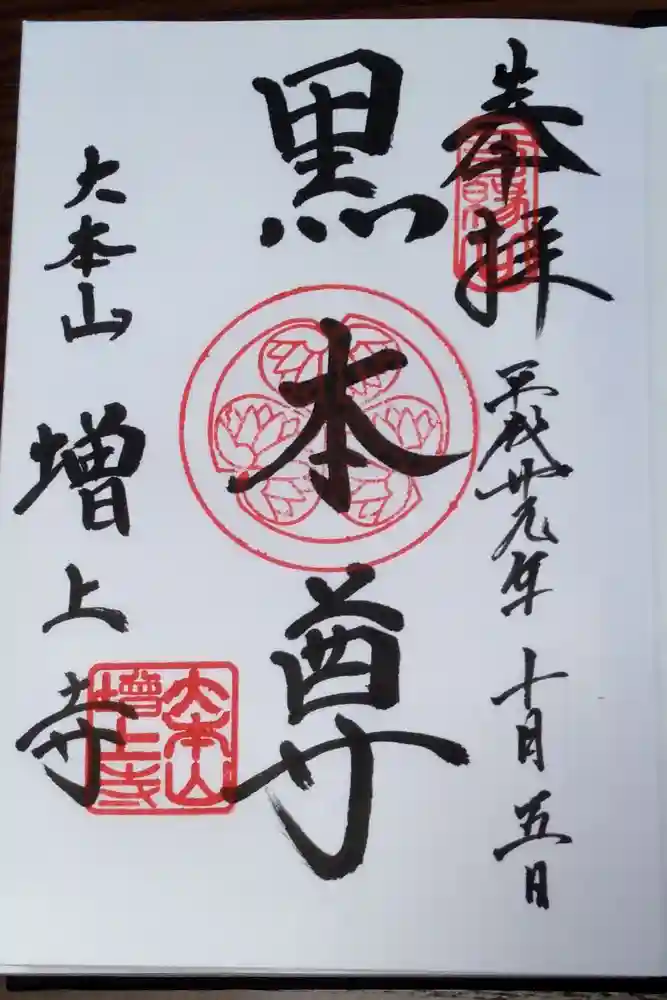 奉拝
平成廿九年 十月 五日
黒本尊
大本山 増上寺
大本山
增上寺